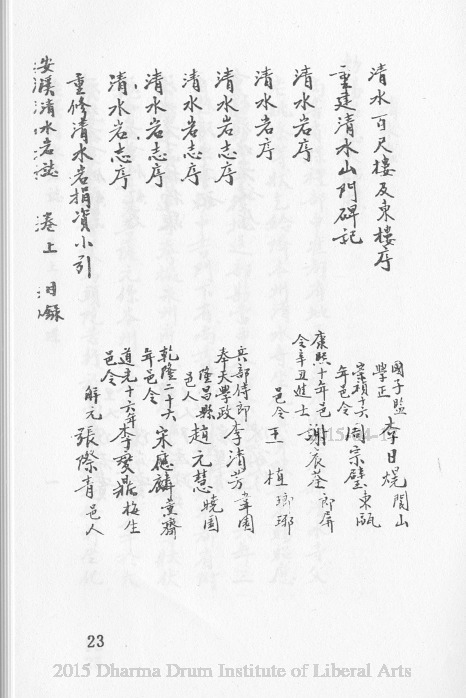 清水百尺樓及東樓序 國子監學正 李日焜 閬山
重建清水山門碑記 崇禎十六年邑令 周宗璧 東甌
清水岩序 康熙十年邑令辛丑進士 謝宸荃 郎屏
清水岩序 邑令 王植 瑯琊
清水岩志序 兵部侍郎奉天學政 李清芳 韋園
清水岩志序 隆昌縣邑人 趙元慧 曉園
清水岩志序 乾隆二十六年邑令 宋應麟 黃齋
清水岩志序 道光十六年 李愛鼎 梅生
重修清水岩捐資小引 邑令 解元 張際青 邑人
安溪清水岩誌 卷上 目錄
23
2015 Dharma Drum Institute of Liberal Arts